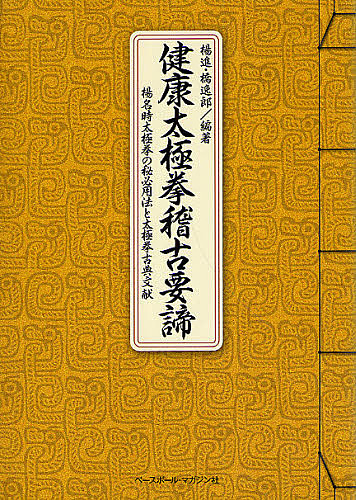 楊進・橋逸郎／編著
健康太極拳稽古要諦
楊名時太極拳の秘必用法と太極拳古典文献
ベースボール・マガジン社